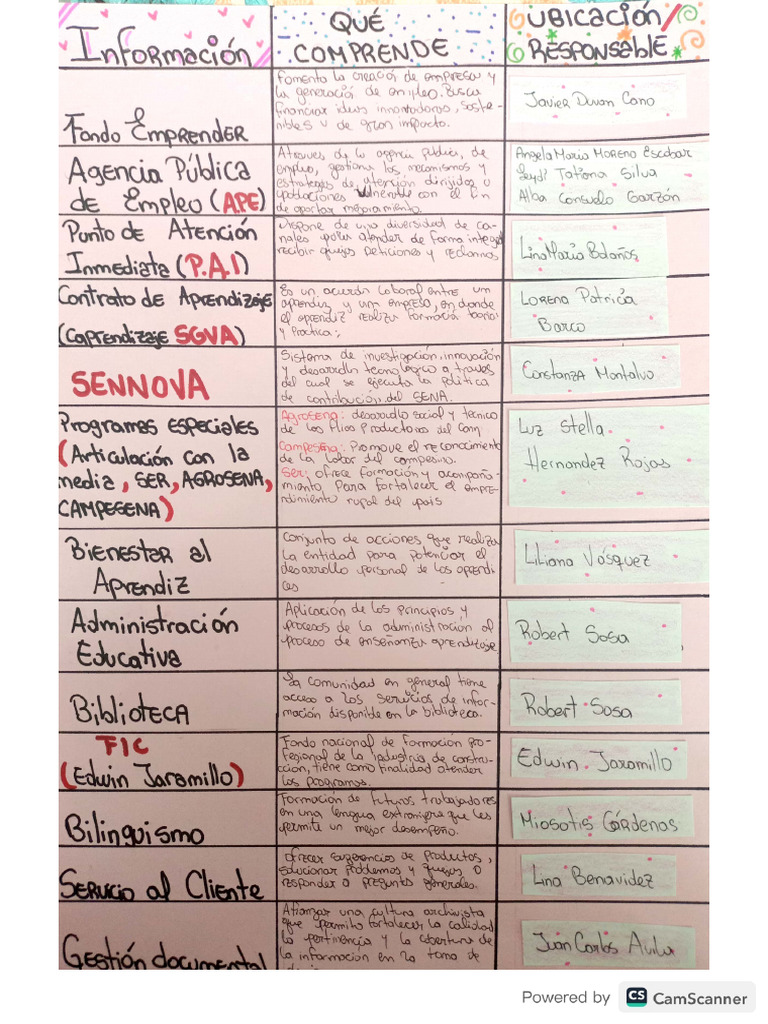 Información
QUÉ
COMPRENDE
UBICACIÓN/
RESPONSABLE
Fondo EMPRENDER
Fomento la creación de empresa y
la generación de empleo. Busca
financiar ideas innovadoras, soste-
nibles y de gran impacto.
Javier Duvan Cano
Agencia Pública
de Empleo (APE)
Atraves de la agencia publica, de
empleo, gestiona los mecanismos y
estrategias de atención dirigidos a
poblaciones vulnerable con el fin
de aportar mejoramiento.
Angela Maria Moreno Escobar
Leydi Tatiana Silva
Alba Consuelo Garzón
Punto de Atención
Inmediata (P.A.I)
Dispone de una diversidad de ca-
nales para atender de forma integral
recibir quejas peticiones y reclamos
Lina Maria Bolaños
Contrato de Aprendizaje
(Caprendizaje SGVA)
Es un acuerdo laboral entre un
aprendiz y una empresa, en donde
el aprendiz realiza formación teoria
y Practica.
Lorena Patricia
Barco
SENNOVA
Sistema de investigación, innovación
y desarrollo tecnologico a traves
del cual se ejecuta la politica
de contribución del SENA.
Constanza Montalvo
Programas especiales
(Articulación con la
media, SER, AGROSENA,
CAMPESENA)
Agrosena: desarrollo social y tecnico
de los Productores del Camp
Campesena: Promueve el reconocimiento
de la labor del campesino.
Ser: ofrece formación y acompaña-
miento Para fortalecer el empre-
ndimiento rural del pais
Luz Stella
Hernandez Rojas
Bienestar al
Aprendiz
Conjunto de acciones que realiza
la entidad para potenciar el
desarrollo personal de los aprendi-
ces
Liliana Vásquez
Administración
Educativa
Aplicación de los principios y
procesos de la administración al
proceso de enseñanza aprendizaje
Robert Sosa
Biblioteca
La comunidad en general tiene
acceso a los servicios de infor-
mación disponible en la biblioteca.
Robert Sosa
FIC
(Edwin Jaramillo)
Fondo nacional de formación pro-
fesional de la industria de constru-
cción, tiene como finalidad atender
los programas.
Edwin Jaramillo
Bilinguismo
Formación de futuros trabajadores
en una lengua extranjera que les
permita un mejor desempeño.
Miosotis Cárdenas
Servicio al Cliente
Ofrecer sugerencias de productos,
solucionar problemas y quejas o
responder a preguntas generales.
Lina Benavidez
Gestión documental
Afianzar una cultura archivista
que permita fortalecer la calidad
la pertinencia y la cobertura de
la informacion en la toma de
Juan Carlos Avila
Powered by CS CamScanner